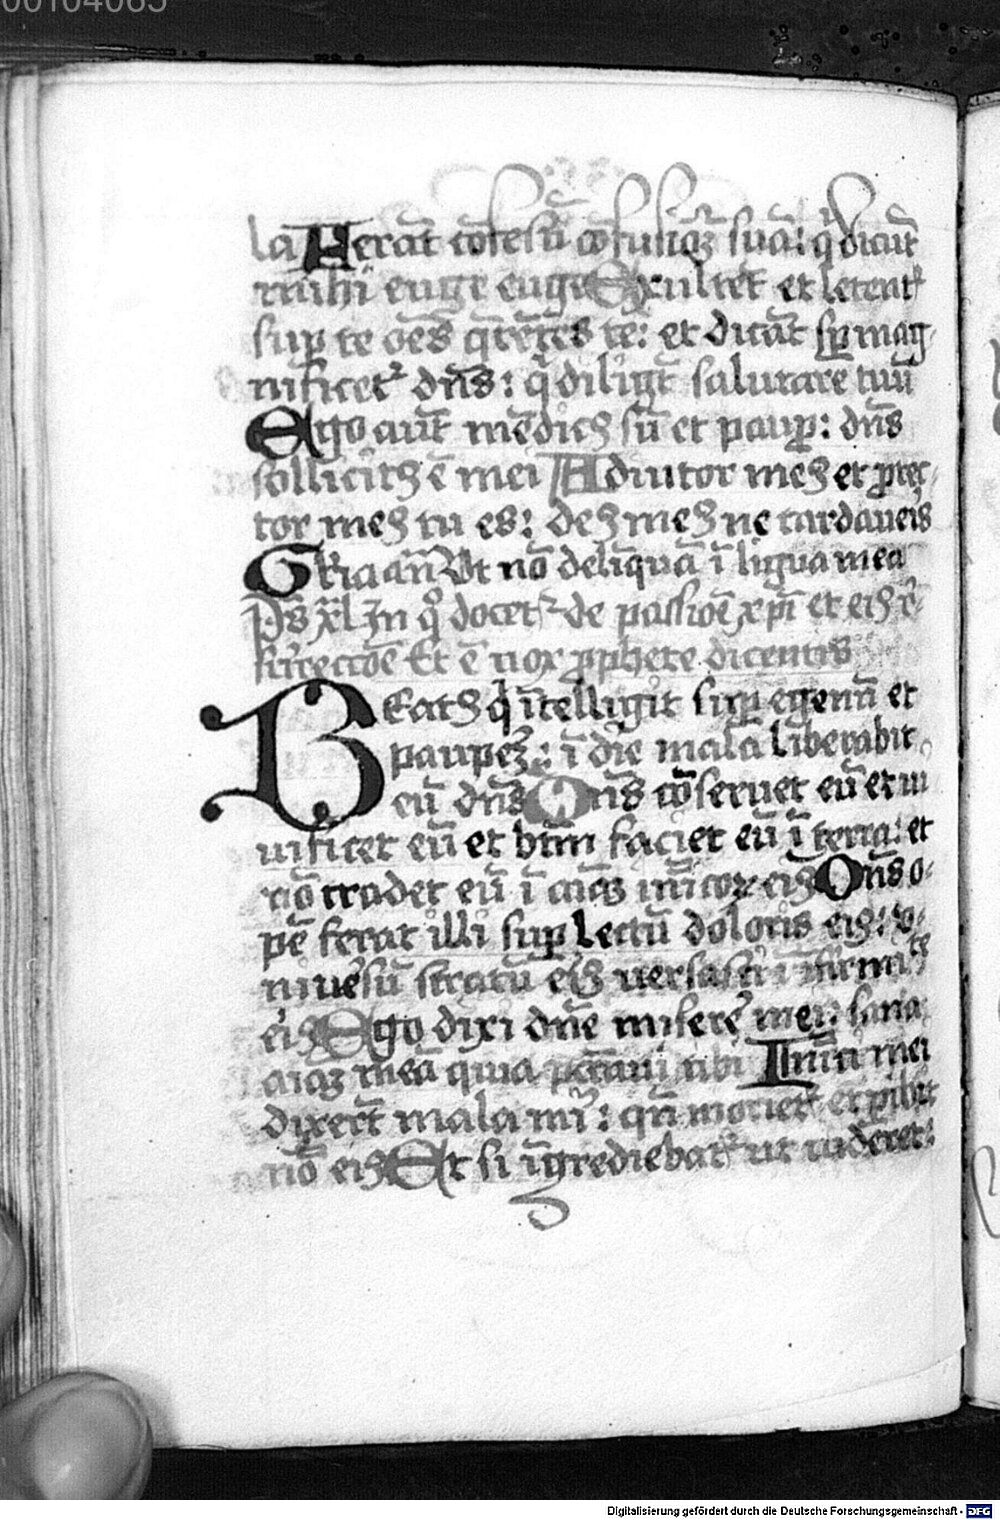 00104065
la Ferāt cōfesti cōfusionē suā: q̄ dicūt
michi euge euge Exultēt et letentʳ
suꝑ te oēs q̄rētes te: et dicāt sꝑ mag-
nificetʳ dn̄s: q̄ diligūt salutarē tuū
Ego aūt mēdicꝰ sū et pauꝑ: dn̄s
sollicitꝰ ē mei Adiutor meꝰ et ꝓtec-
tor meꝰ tu es: deꝰ meꝰ ne tardaueis
Gʳia an̄ Vt nō deliquā ī ligua mea
Ps xl In qͦ docetʳ de passiōe xp̄i et eiꝰ r̄-
surrectiōe Et ē uox ꝓphete dicentis
Beatꝰ q̄ ītelligit suꝑ egenū et
pauꝑeꝫ: ī die mala liberabit
eū dn̄s Dn̄s cōseruet eū et ui
uificet eū et btm̄ faciet eū ī terra: et
nō tradet eū ī aīaꝫ inīcoꝝ eiꝰ Dn̄s o-
pē ferat illi suꝑ lectū doloris eiꝰ: v-
niuēsū stratū eiꝰ uersasti ī īfirmitᵗᵉ
eiꝰ Ego dixi dn̄e miserē mei: sana
aīaꝫ meā quia pccaui tibi Inīci mei
dixerūt mala mī: qn̄ morietʳ et ꝑibit
nō eiꝰ Et si īgrediebatʳ ut uideret:
Digitalisierung gefördert durch die Deutsche Forschungsgemeinschaft - DFG